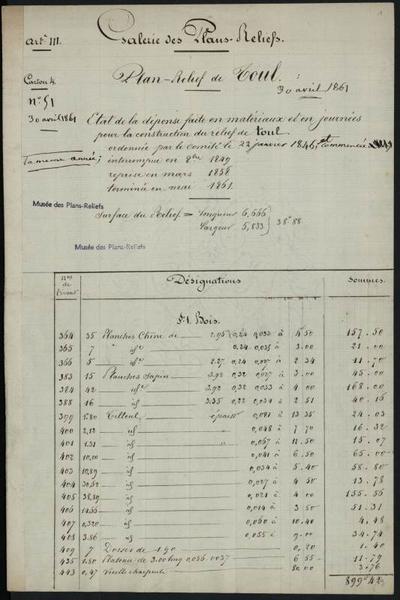 artle III.
Galerie des Plans-Reliefs.
Carton 4.
Plan-Relief de Toul.
30 avril 1861
n° 51
30 avril 1861
Etat de la dépense faite en matériaux et en journées
pour la construction du relief de toul
ordonnée par le comité le 22 janvier 1846, et commencée
la même année; interrompue en 8bre 1849
reprise en mars 1858
terminé en mai 1861.
Musée des Plans-Reliefs
Surface du Relief = Longueur 6,666
Largeur 5,833
38m 88
Musée des Plans-Reliefs
Nos de Désignations Sommes.
§1. Bois.
364 35 Planches Chêne de 2.95 0,24 0,033 à 4.50 157.50
365 7 id 0.24 0,025 à 3.00 21.00
366 5 id 2.27 0,24 à 2.34 11.70
383 15 Planches Sapin 3.92 0,32 0,027 à 3.00 45.00
384 42 id 3.92 0,32 0,033 à 4.00 168.00
388 16 id 3.35 0,22 à 2.51 40.16
399 1.80 Tilleul épaisr 0,081 à 13.35 24.03
400 2,12 id 0,048 à 7.70 16.32
401 1.31 id 0,067 à 11.50 15.07
402 10,00 id 0,041 à 6.50 65.00
403 10,89 id 0,034 à 5.40 58.80
404 id 0,027 à 4.50 13.78
405 38,89 id 0,021 à 4.00 155.56
406 14.66 id 0,014 à 3.50 51.31
407 0,320 id 0,060 à 10.40 4.48
408 3.86 id 0,055 à 9.00 34.74
409 7 Dosses de 1.90 0,20 1.40
435 1.80 Plateau de 3.00 long 0,036 6.55 11.79
443 0,47 Vieille charpente 80.00 3.76
899f 42